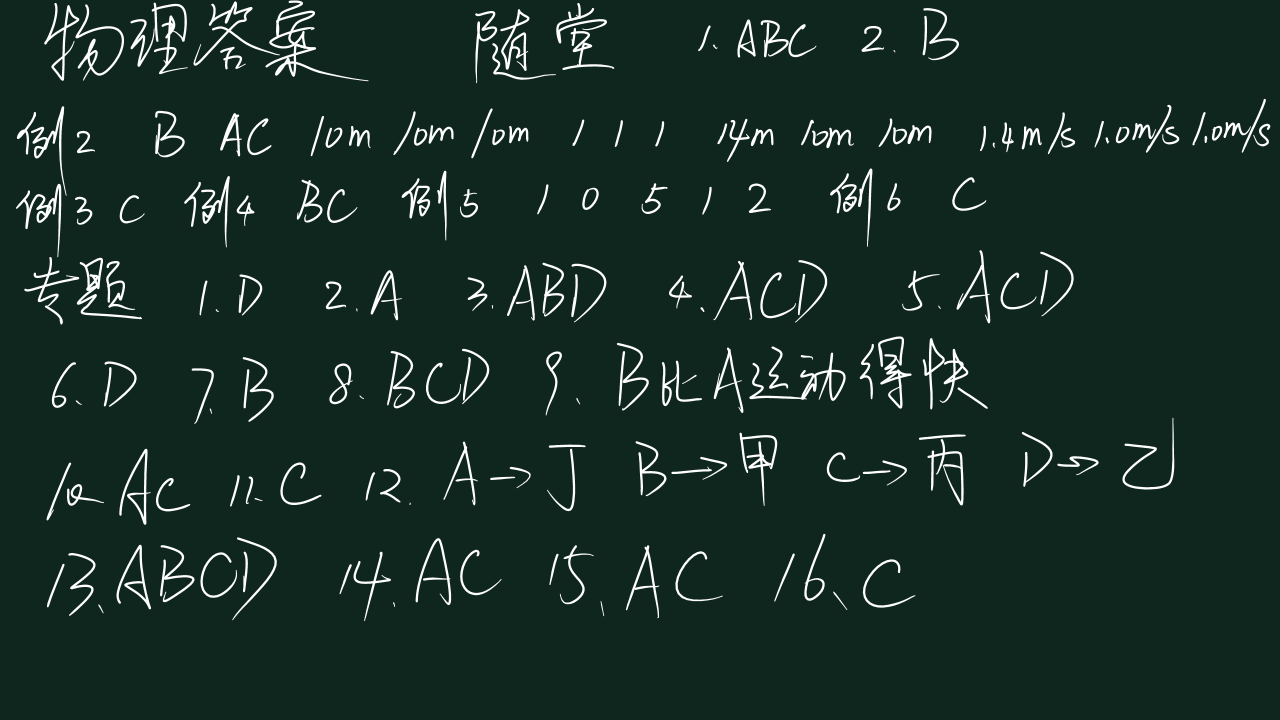 物理答案 随堂 1. ABC 2. B
例2 B AC 10m 10m 10m 1 1 1 14m 10m 10m 1.4m/s 1.0m/s 1.0m/s
例3 C 例4 BC 例5 1 0 5 1 2 例6 C
专题 1. D 2. A 3. ABD 4. ACD 5. ACD
6. D 7. B 8. BCD 9. B比A运动得快
10. AC 11. C 12. A→丁 B→甲 C→丙 D→乙
13. ABCD 14. AC 15. AC 16. C